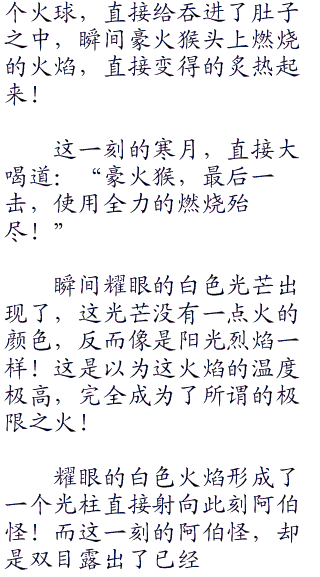 个火球，直接给吞进了肚子
之中，瞬间豪火猴头上燃烧
的火焰，直接变得的炙热起
来！
这一刻的寒月，直接大
喝道：“豪火猴，最后一
击，使用全力的燃烧殆
尽！”
瞬间耀眼的白色光芒出
现了，这光芒没有一点火的
颜色，反而像是阳光烈焰一
样！这是以为这火焰的温度
极高，完全成为了所谓的极
限之火！
耀眼的白色火焰形成了
一个光柱直接射向此刻阿伯
怪！而这一刻的阿伯怪，却
是双目露出了已经